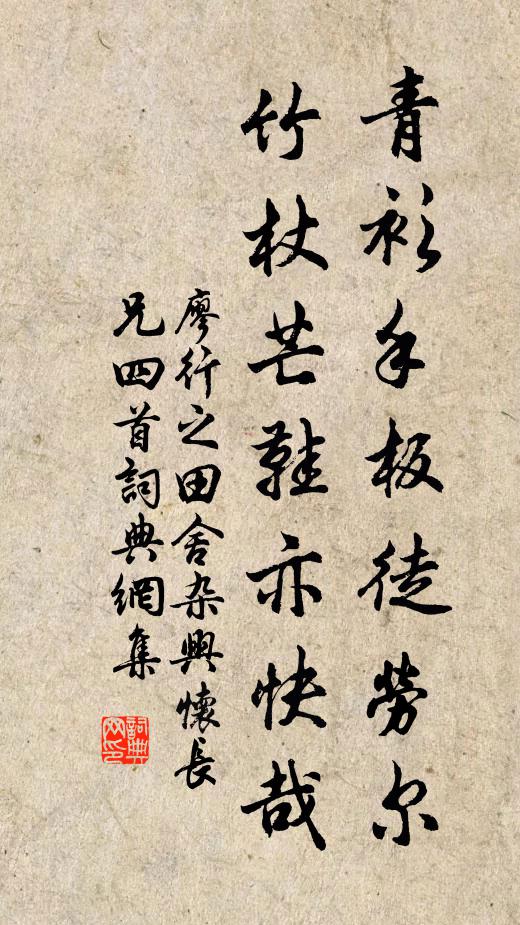 青衫手板徒勞尔
竹杖芒鞋亦快哉
廖行之田舍杂興懷長
兄四首詞典網集
詞典
网印